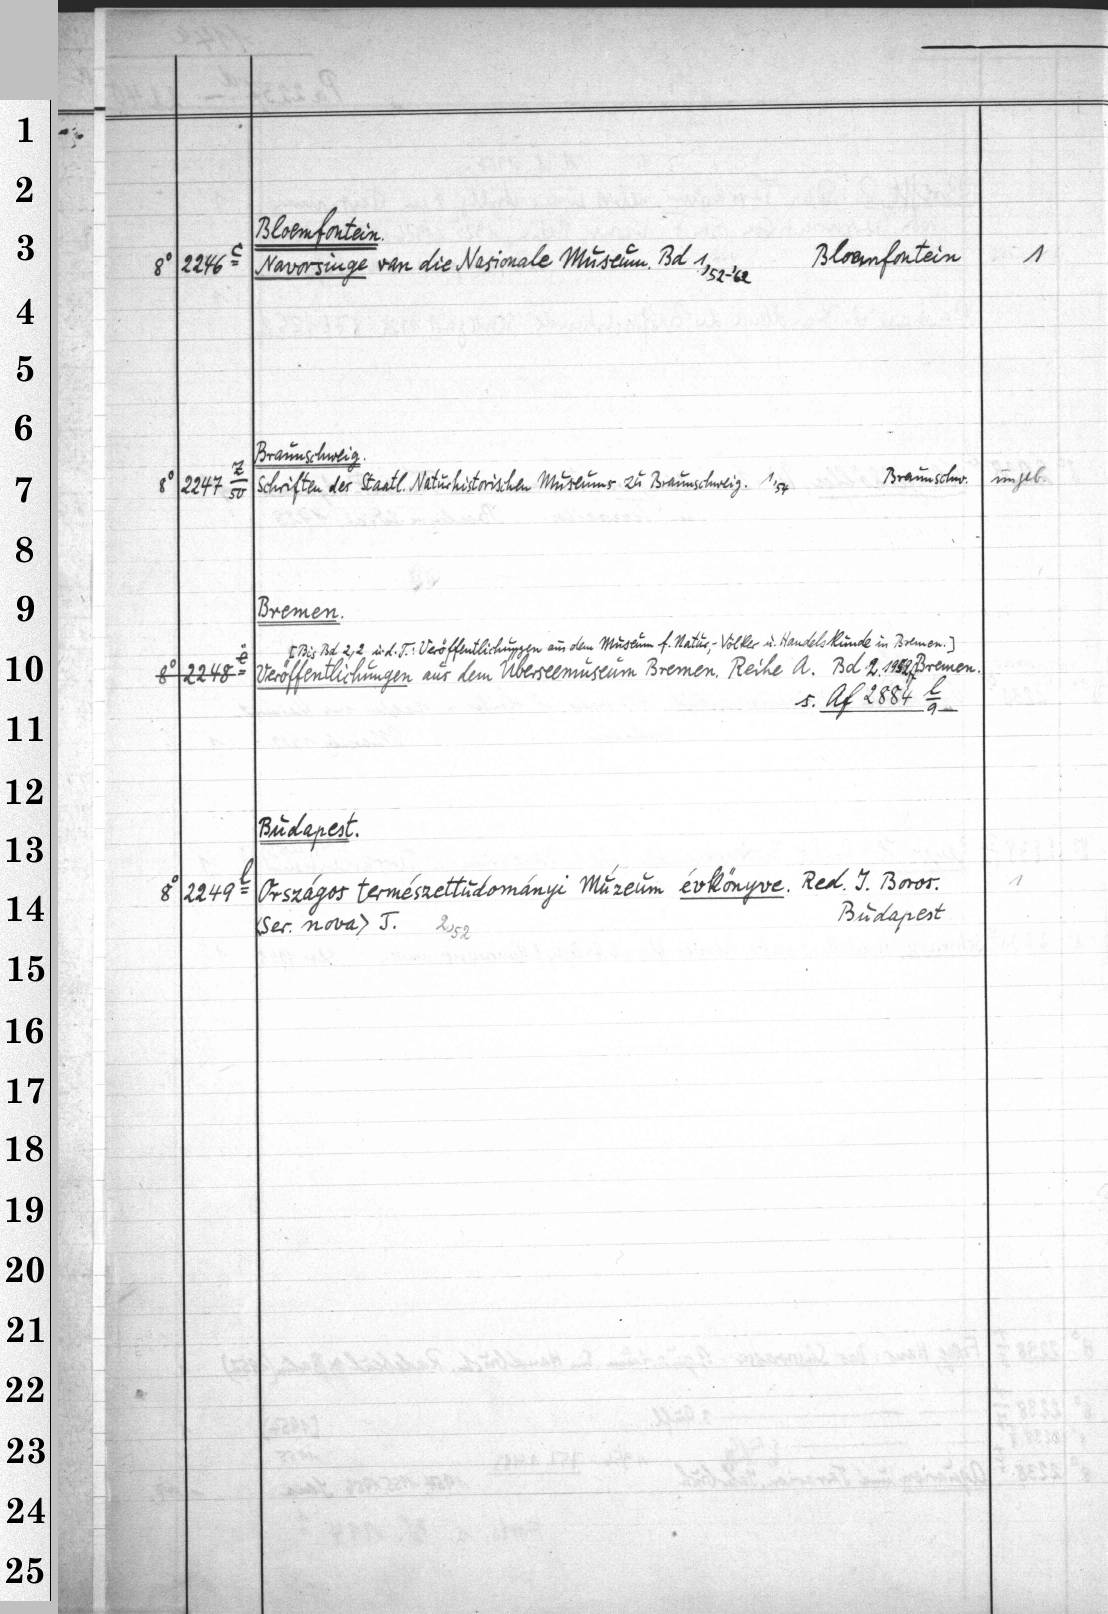 1
2
Bloemfontein.
3
8° 2246 c Navorsinge van die Nasionale Museum. Bd 1,'52-'62 Bloemfontein 1
4
5
6
Braunschweig.
7
8° 2247 z/50 Schriften des Staatl. Naturhistorischen Museums zu Braunschweig. 1,54 Braunschw. ungeb.
8
9
Bremen.
[Bis Bd 2,2 u.d.T.: Veröffentlichungen aus dem Museum f. Natur,- Völker u. Handelskunde in Bremen.]
10
8° 2248 e Veröffentlichungen aus dem Überseemuseum Bremen. Reihe A. Bd 2. Bremen.
s. Af 2884 l/a
11
12
Budapest.
13
8° 2249 l Országos természettudományi Múzeum évkönyve. Red. I. Boros. 1
14
Budapest
(Ser. nova) T. 2,52
15
16
17
18
19
20
21
22
23
24
25